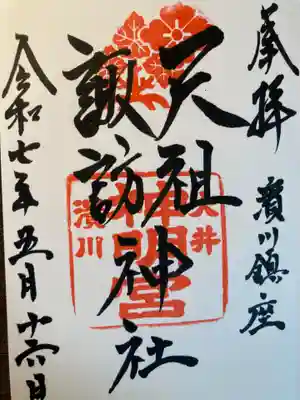 奉拝
濱川鎮座
天祖神社
諏訪
令和七年五月十六日
大井
神明宮
濱川